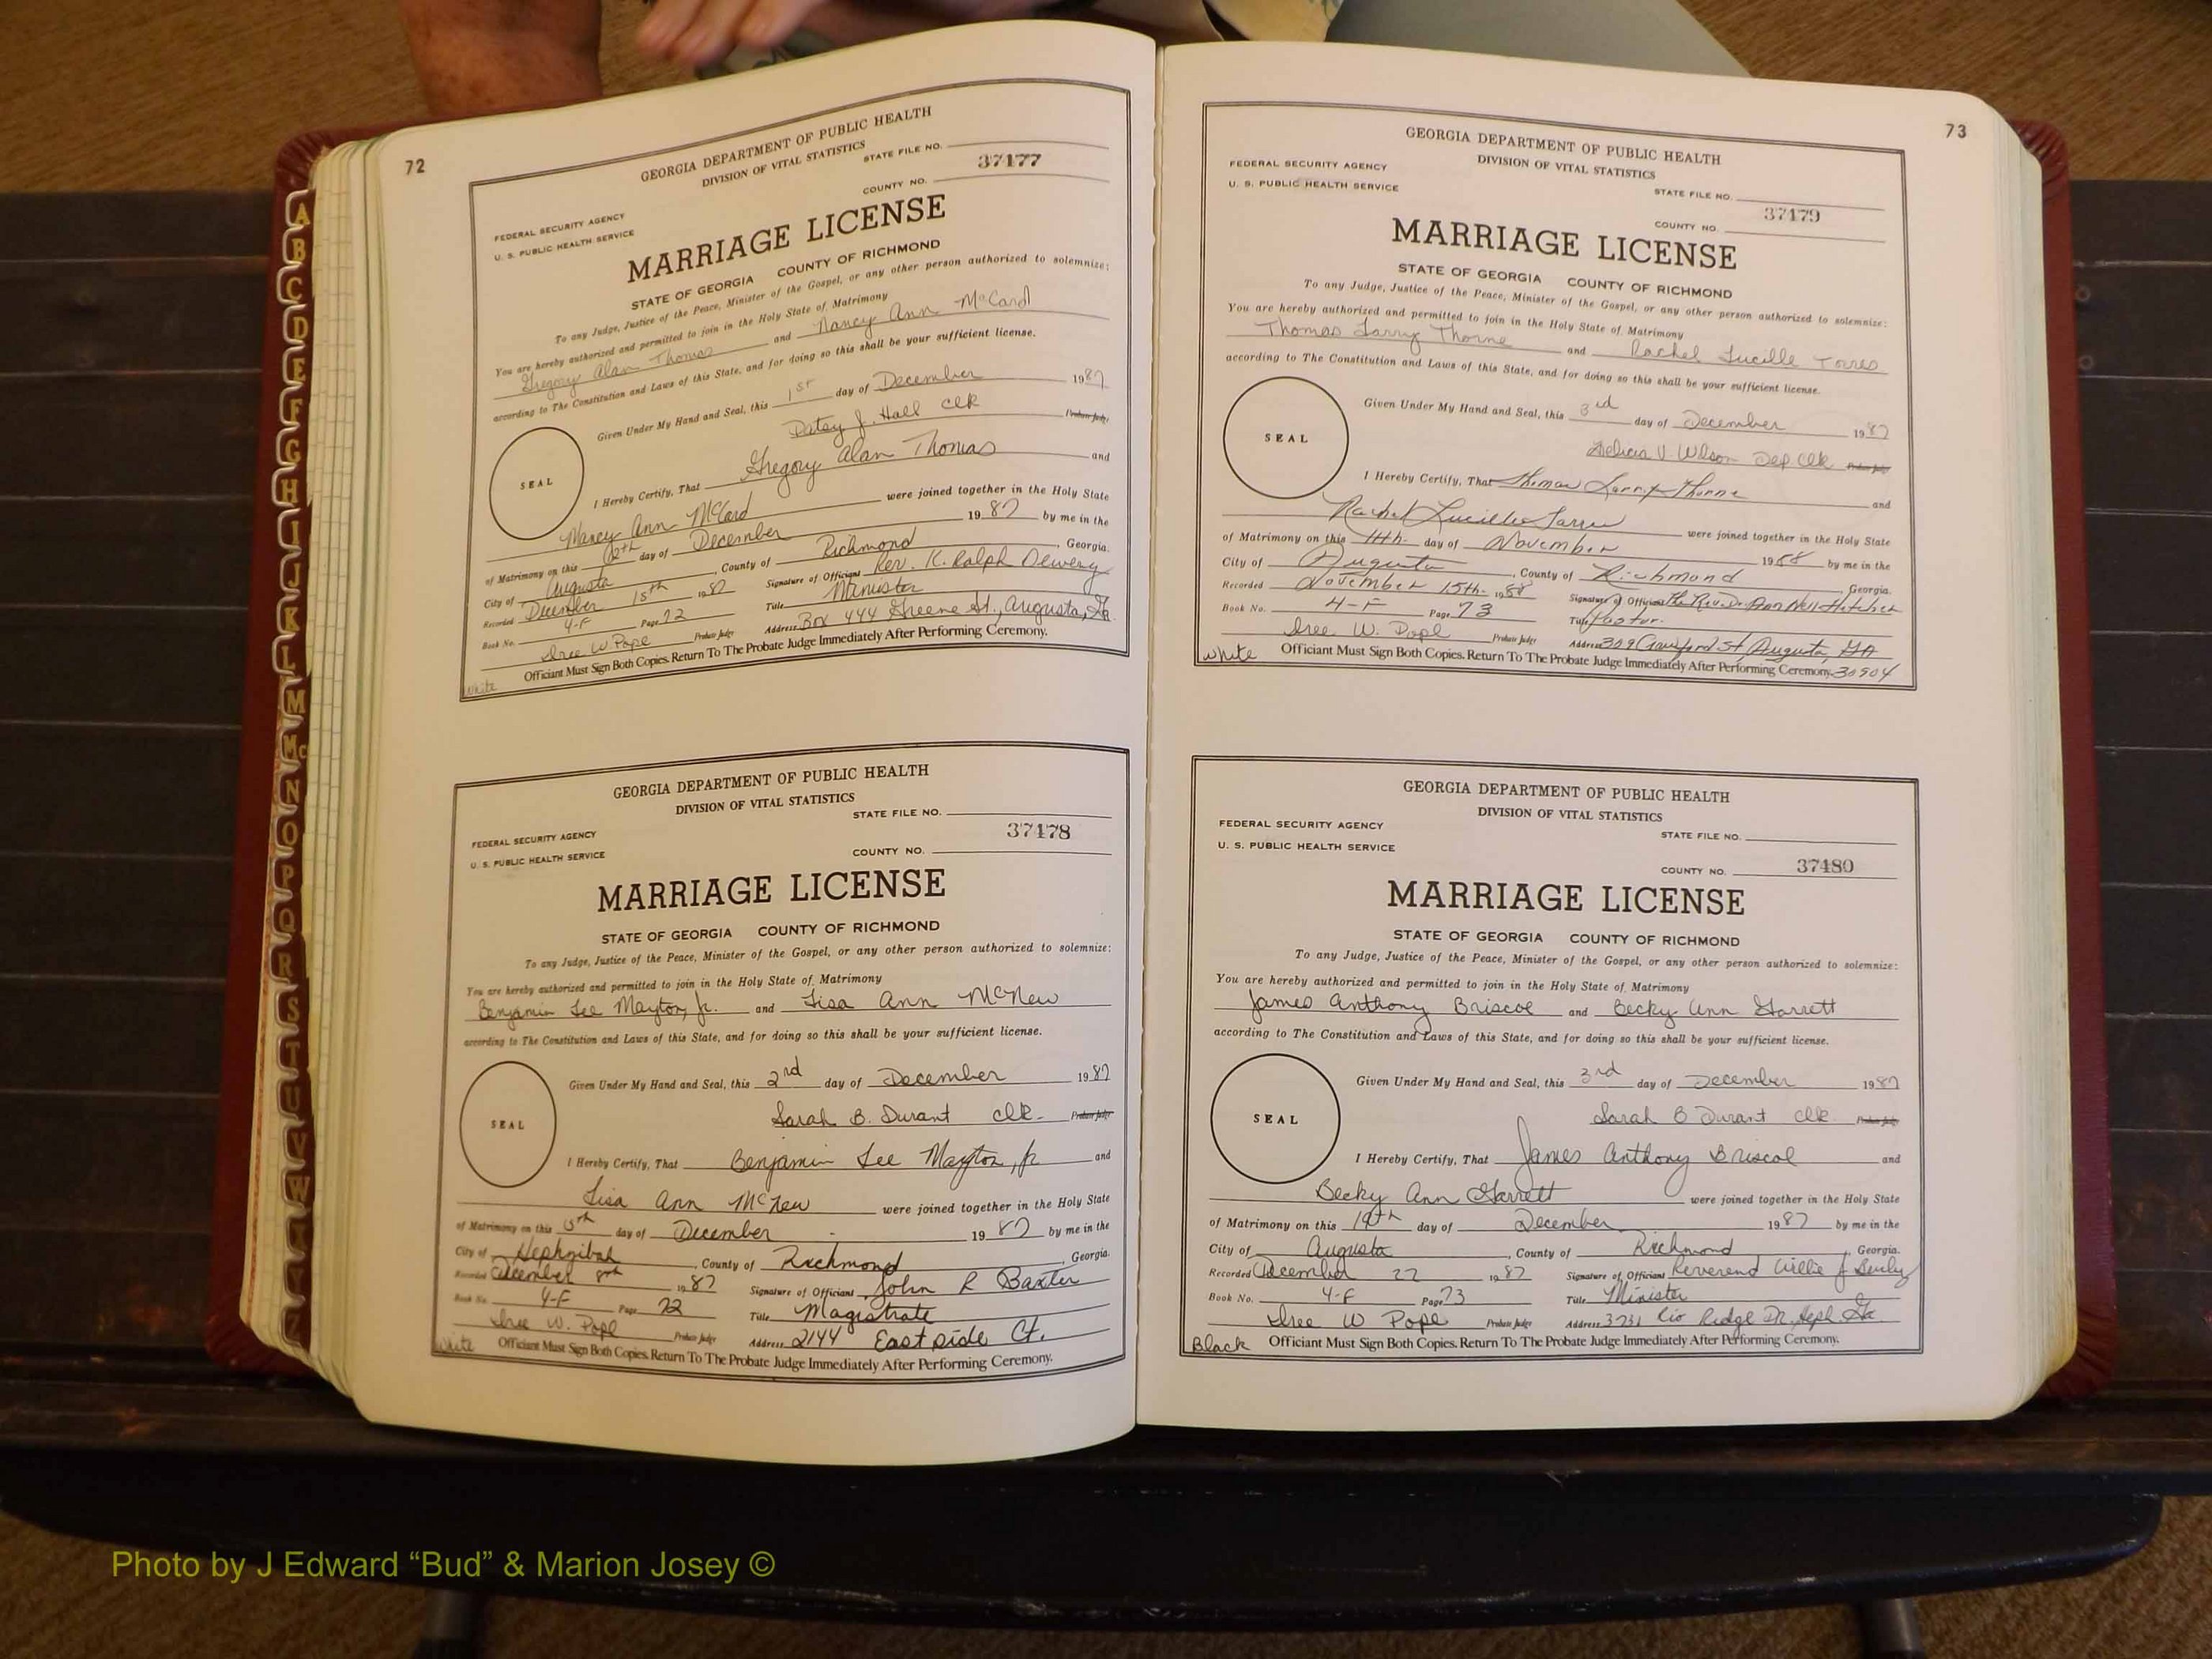 72
GEORGIA DEPARTMENT OF PUBLIC HEALTH
DIVISION OF VITAL STATISTICS
STATE FILE NO.
37177
COUNTY NO.
FEDERAL SECURITY AGENCY
U. S. PUBLIC HEALTH SERVICE
MARRIAGE LICENSE
STATE OF GEORGIA COUNTY OF RICHMOND
To any Judge, Justice of the Peace, Minister of the Gospel, or any other person authorized to solemnize:
You are hereby authorized and permitted to join in the Holy State of Matrimony
Gregory Alan Thomas and Nancy Ann McCard
according to The Constitution and Laws of this State, and for doing so this shall be your sufficient license.
Given Under My Hand and Seal, this 1st day of December 1987
Patsy J. Hall Clk Probate Judge
SEAL
I Hereby Certify, That Gregory Alan Thomas and
Nancy Ann McCard were joined together in the Holy State
of Matrimony on this 12th day of December 1987 by me in the
City of Augusta, County of Richmond, Georgia.
Recorded December 15th 1987 Signature of Officiant Rev. K. Ralph
Book No. 4-F Page 72 Title Minister
Iree W. Pope Probate Judge Address Box 444 Greene St., Augusta, Ga.
Officiant Must Sign Both Copies. Return To The Probate Judge Immediately After Performing Ceremony.
White
GEORGIA DEPARTMENT OF PUBLIC HEALTH
DIVISION OF VITAL STATISTICS
STATE FILE NO.
37178
FEDERAL SECURITY AGENCY
U. S. PUBLIC HEALTH SERVICE
COUNTY NO.
MARRIAGE LICENSE
STATE OF GEORGIA COUNTY OF RICHMOND
To any Judge, Justice of the Peace, Minister of the Gospel, or any other person authorized to solemnize:
You are hereby authorized and permitted to join in the Holy State of Matrimony
Benjamin Lee Mayton, Jr. and Lisa Ann McNew
according to The Constitution and Laws of this State, and for doing so this shall be your sufficient license.
Given Under My Hand and Seal, this 2rd day of December 1987
Sarah B. Durant Clk. Probate Judge
SEAL
I Hereby Certify, That Benjamin Lee Mayton, Jr and
Lisa Ann McNew were joined together in the Holy State
of Matrimony on this 5th day of December 1987 by me in the
City of Hephzibah, County of Richmond, Georgia.
Recorded December 8th 1987 Signature of Officiant John R Baxter
Book No. 4-F Page 72 Title Magistrate
Iree W. Pope Probate Judge Address 2144 Eastside Ct.
White Officiant Must Sign Both Copies. Return To The Probate Judge Immediately After Performing Ceremony.
73
GEORGIA DEPARTMENT OF PUBLIC HEALTH
DIVISION OF VITAL STATISTICS
FEDERAL SECURITY AGENCY
U. S. PUBLIC HEALTH SERVICE
STATE FILE NO.
37179
COUNTY NO.
MARRIAGE LICENSE
STATE OF GEORGIA COUNTY OF RICHMOND
To any Judge, Justice of the Peace, Minister of the Gospel, or any other person authorized to solemnize:
You are hereby authorized and permitted to join in the Holy State of Matrimony
Thomas Larry Thorne and Rachel Lucille Torres
according to the Constitution and Laws of this State, and for doing so this shall be your sufficient license.
Given Under My Hand and Seal, this 3rd day of December 1987
V. Wilson Dep Clk Probate Judge
SEAL
I Hereby Certify, That Thomas Larry Thorne and
Rachel Lucille were joined together in the Holy State
of Matrimony on this 11th day of November 1988 by me in the
City of Augusta, County of Richmond, Georgia.
Recorded November 15th 1988 Signature of Officiant The Rev. Dr. Ann Nell
Book No. 4-F Page 73 Title Pastor.
Iree W. Pope Probate Judge Address 309 Crawford St Augusta, GA
White Officiant Must Sign Both Copies. Return To The Probate Judge Immediately After Performing Ceremony. 30904
GEORGIA DEPARTMENT OF PUBLIC HEALTH
DIVISION OF VITAL STATISTICS
FEDERAL SECURITY AGENCY
STATE FILE NO.
U. S. PUBLIC HEALTH SERVICE
COUNTY NO. 37180
MARRIAGE LICENSE
STATE OF GEORGIA COUNTY OF RICHMOND
To any Judge, Justice of the Peace, Minister of the Gospel, or any other person authorized to solemnize:
You are hereby authorized and permitted to join in the Holy State of Matrimony
James Anthony Briscoe and Becky Ann Garrett
according to The Constitution and Laws of this State, and for doing so this shall be your sufficient license.
Given Under My Hand and Seal, this 3rd day of December 1987
Sarah B Durant Clk. Probate Judge
SEAL
I Hereby Certify, That James Anthony Briscoe and
Becky Ann Garrett were joined together in the Holy State
of Matrimony on this 19th day of December 1987 by me in the
City of Augusta, County of Richmond, Georgia.
Recorded December 22 1987 Signature of Officiant Reverend Willie J
Book No. 4-F Page 73 Title Minister
Iree W Pope Probate Judge Address 3731 Rio Ridge Dr. Heph Ga.
Black Officiant Must Sign Both Copies. Return To The Probate Judge Immediately After Performing Ceremony.
A
B
C
D
E
F
G
H
I
J
K
L
M
Mc
N
O
P
Q
R
S
T
U
V
W
Photo by J Edward “Bud” & Marion Josey ©